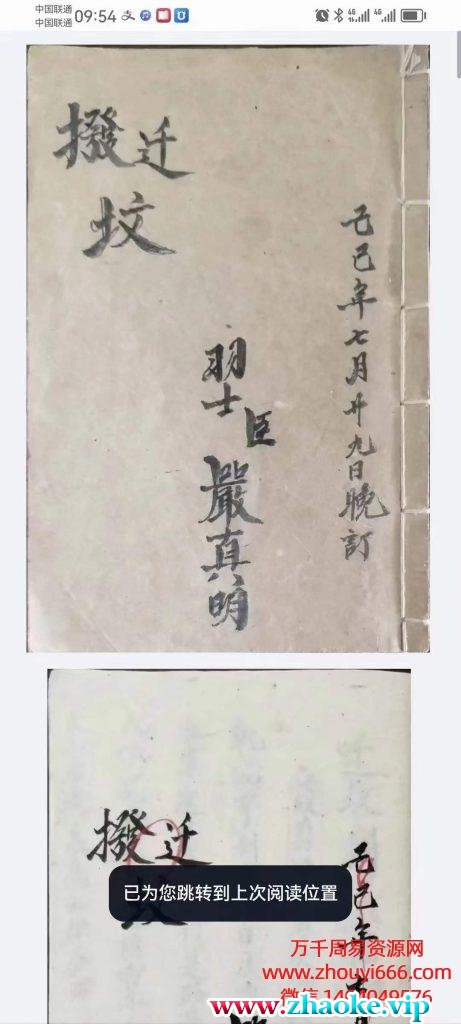 中国联通
中国联通
09:54
4G
4G
撥迁
坟
己巳年七月廿九日晚訂
羽士
臣
嚴真明
撥迁
己巳年七月
已为您跳转到上次阅读位置
万千周易资源网
www.zhouyi666.com
www.zhaoke.vip